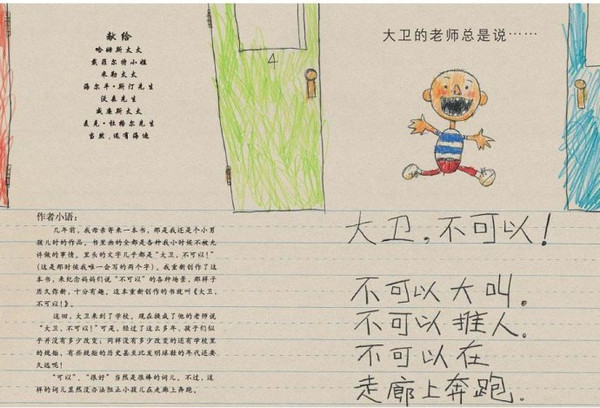 献给
哈姆斯太太
戴菲尔特小姐
米勒太太
海尔平·斯汀先生
沃森先生
威廉斯太太
麦克·杜格尔先生
当然,还有海迪
4
大卫的老师总是说……
作者小语:
几年前,我母亲寄来一本书,那是我还是个小男
孩儿时的作品。书里画的全都是各种我小时候不被允
许做的事情。里头的文字几乎都是“大卫,不可以!”
(这是那时候我唯一会写的两个字)。我重新创作了这
本书,来纪念妈妈们说“不可以”的各种场景,那样子
历久弥新,十分有趣。这本重新创作的书就叫《大卫,
不可以!》。
这回,大卫来到了学校。现在换成了他的老师说
“大卫,不可以!”可是,经过了这么多年,孩子们似
乎并没有多少改变;同样没有多少改变的还有学校里
的规矩,有些规矩的历史甚至比发明球鞋的年代还要
久远呢!
“可以”、“很好”当然是很棒的词儿。不过,这
样的词儿显然没办法阻止小孩儿在走廊上奔跑。
大卫,不可以!
不可以大叫。
不可以推人。
不可以在
走廊上奔跑。